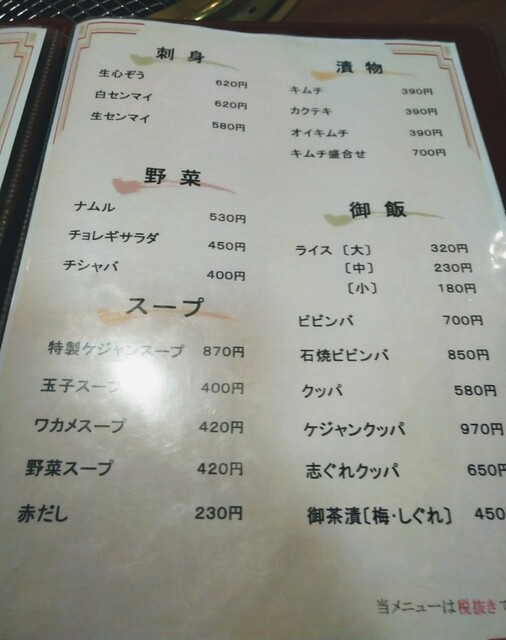 刺身
生心ぞう 620円
白センマイ 620円
生センマイ 580円
野菜
ナムル 530円
チョレギサラダ 450円
チシャバ 400円
スープ
特製ケジャンスープ 870円
玉子スープ 400円
ワカメスープ 420円
野菜スープ 420円
赤だし 230円
漬物
キムチ 390円
カクテキ 390円
オイキムチ 390円
キムチ盛合せ 700円
御飯
ライス〔大〕 320円
〔中〕 230円
〔小〕 180円
ビビンバ 700円
石焼ビビンバ 850円
クッパ 580円
ケジャンクッパ 970円
志ぐれクッパ 650円
御茶漬〔梅・しぐれ〕 450
当メニューは税抜きで